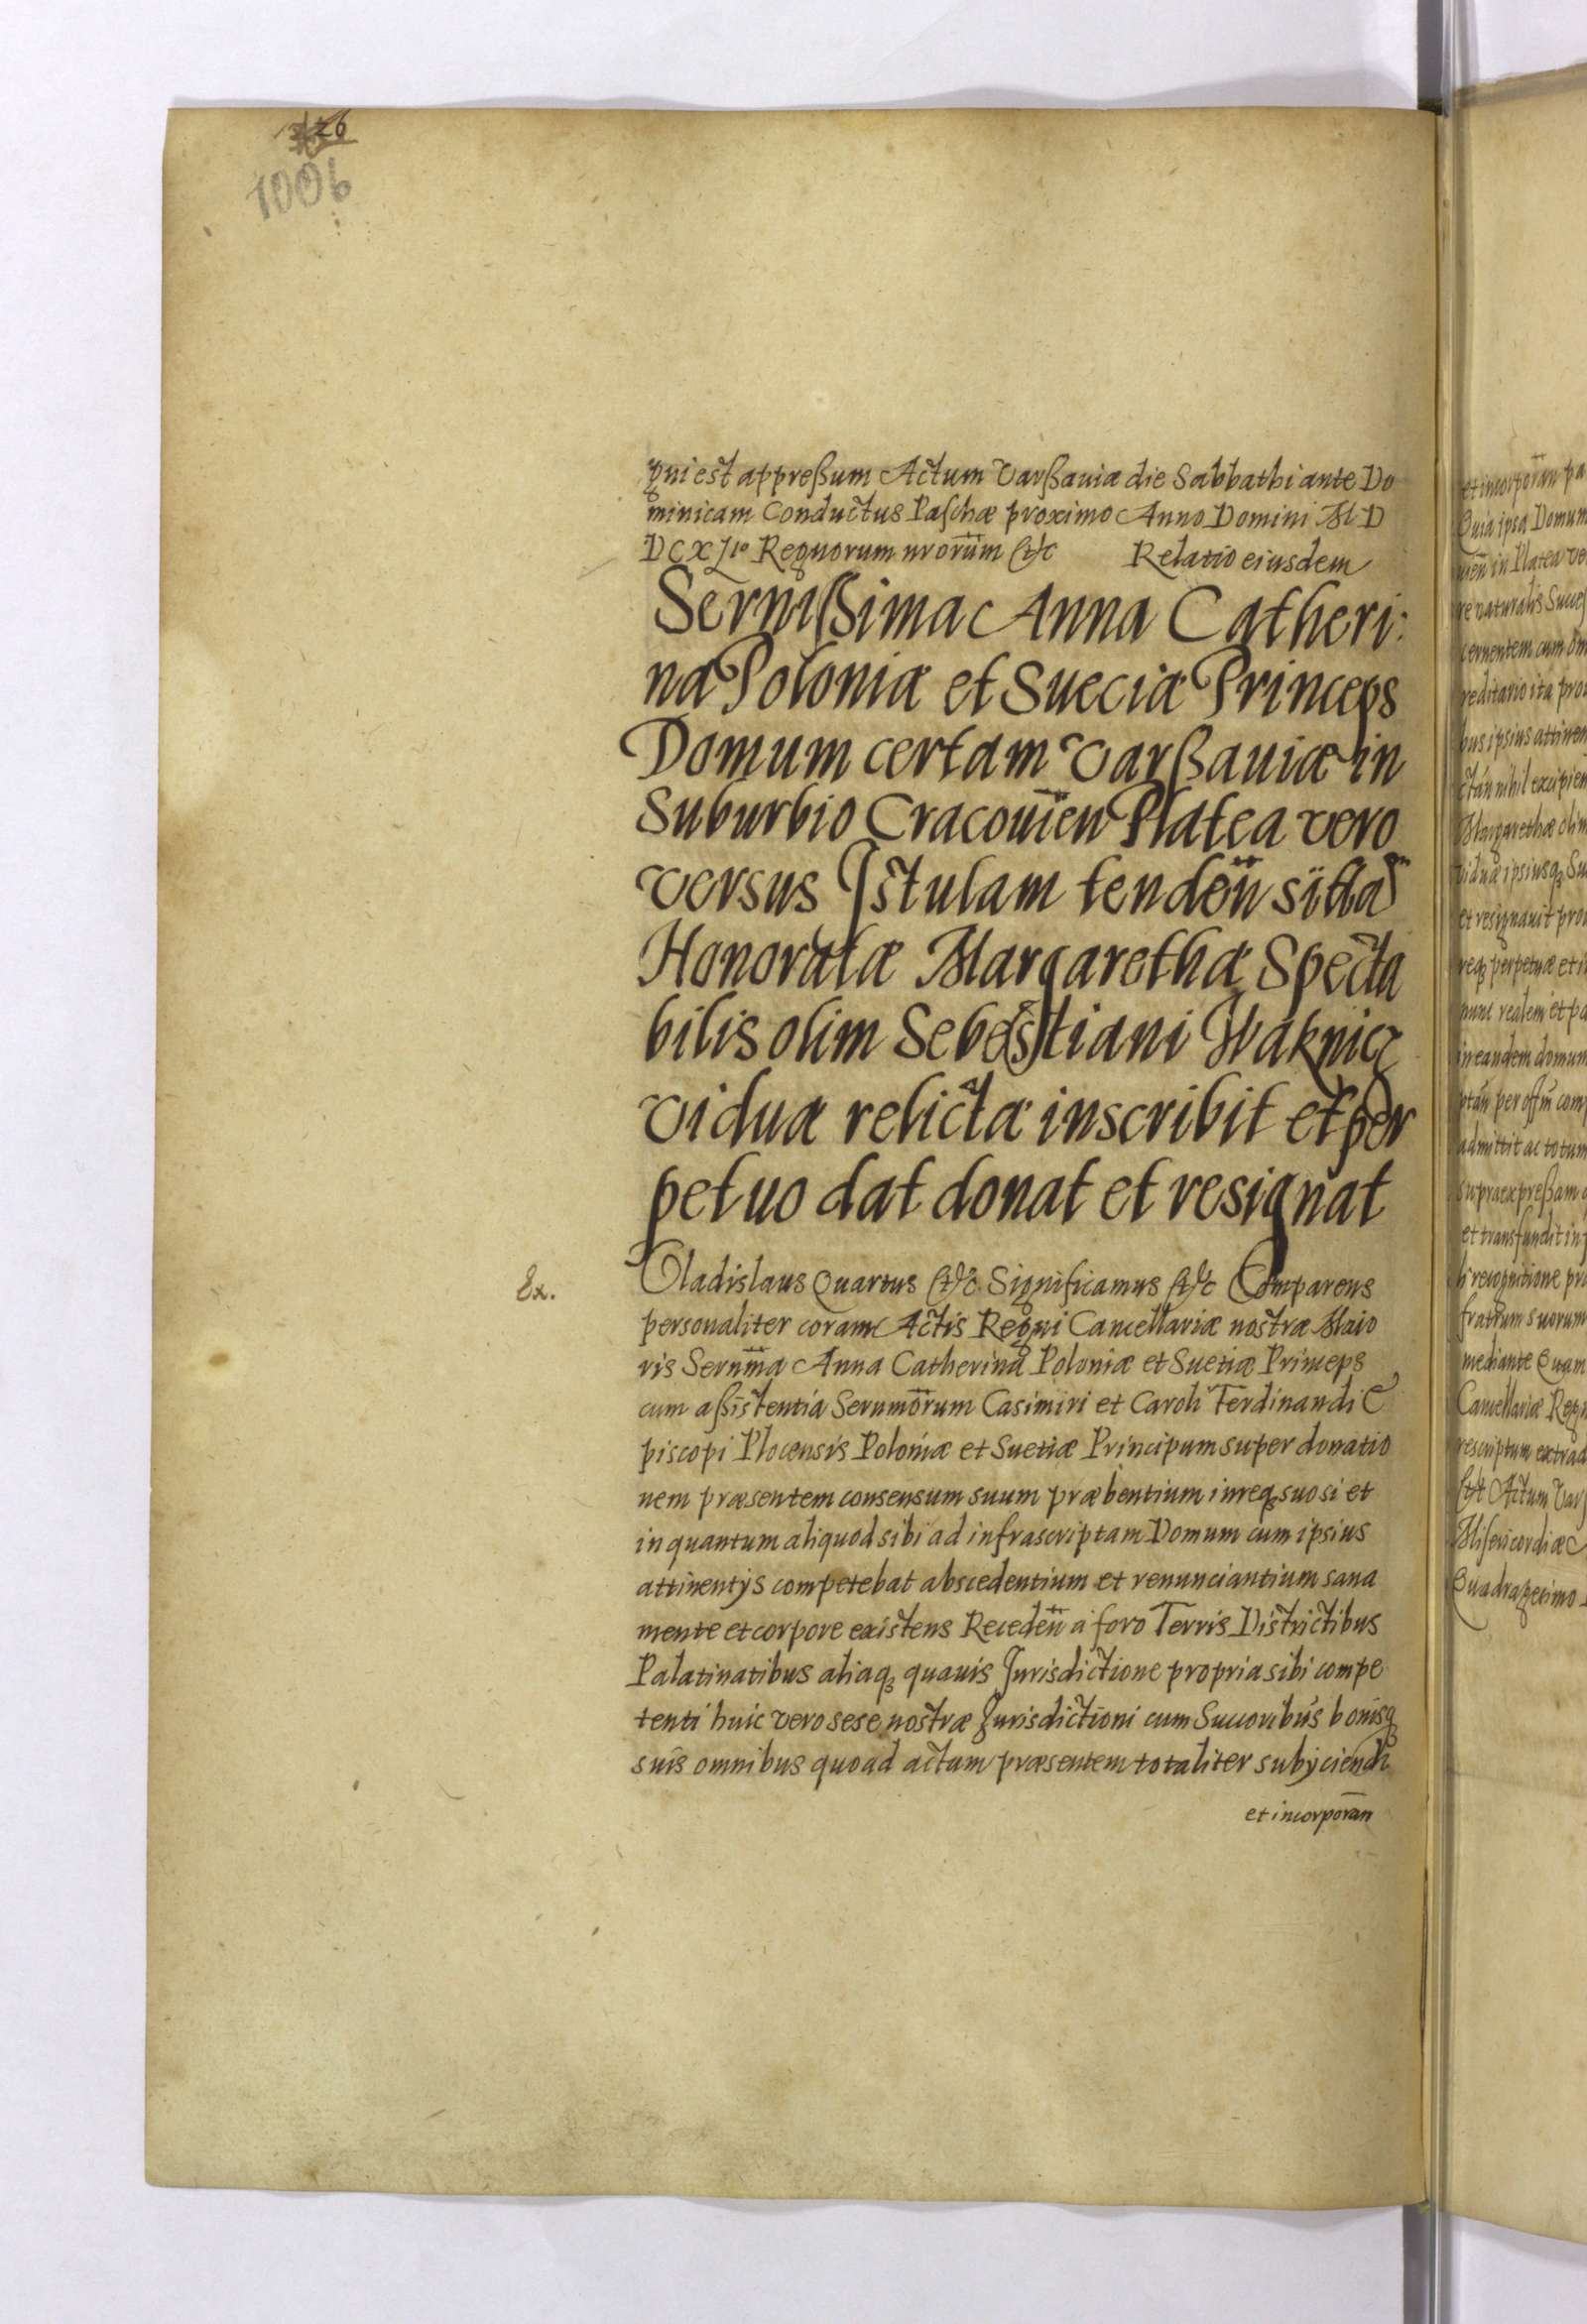 126
100b
gni est appreßum Actum Varßauiæ die Sabbathi ante Do
minicam Conductus Paschæ proximo Anno Domini M D
DCXLIº Regnorum nrorum &c Relatio eiusdem
Sernißima Anna Catheri:
na Poloniæ et Sueciæ Princeps
Domum certam Varßauiæ in
Suburbio Cracouien Platea vero
versus Istulam tenden sitam
Honoratæ Margarethæ Specta
bilis olim Sebestiani
viduæ relictæ inscribit et per
petuo dat donat et resignat
Ex.
Vladislaus Quartus &c Significamus &c Comparens
personaliter coram Actis Regni Cancellariæ nostræ Maio
ris Sernma Anna Catherina Poloniæ et Suetiæ Princeps
cum aßistentia Serumorum Casimiri et Caroli Ferdinandi E
piscopi Plocensis Poloniæ et Suetiæ Principum super donatio
nem præsentem consensum suum præbentium inreq suo si et
in quantum aliquod sibi ad infrascriptam Domum cum ipsius
attinentijs competebat abscedentium et renunciantium sana
mente et corpore existens Receden a foro Terris Districtibus
Palatinatibus aliaq quauis Jurisdictione propria sibi compe
tenti huic vero sese nostræ Jurisdictioni cum Succoribus bonisq
suis omnibus quoad actum præsentem totaliter subijciendi
et incorporan
et incorporan pa
Quia ipsa Domum
in Platea ve
re naturalis Succeß
cernentem cum om
reditario ita pro
bus ipsius attinen
nihil excipien
Margarethæ olim
viduæ ipsiusq Su
et resignauit pro
req perpetuæ et i
nunc realem et pa
in eandem domum
per offm com
admittit ac totum
supraexpreßam
et transfundit in
recognitione pri
fratrum suorum
mediante Quam
Cancellariæ Regn
rescriptum extrad
&c Actum Var
Misericordiæ
Quadragesimo